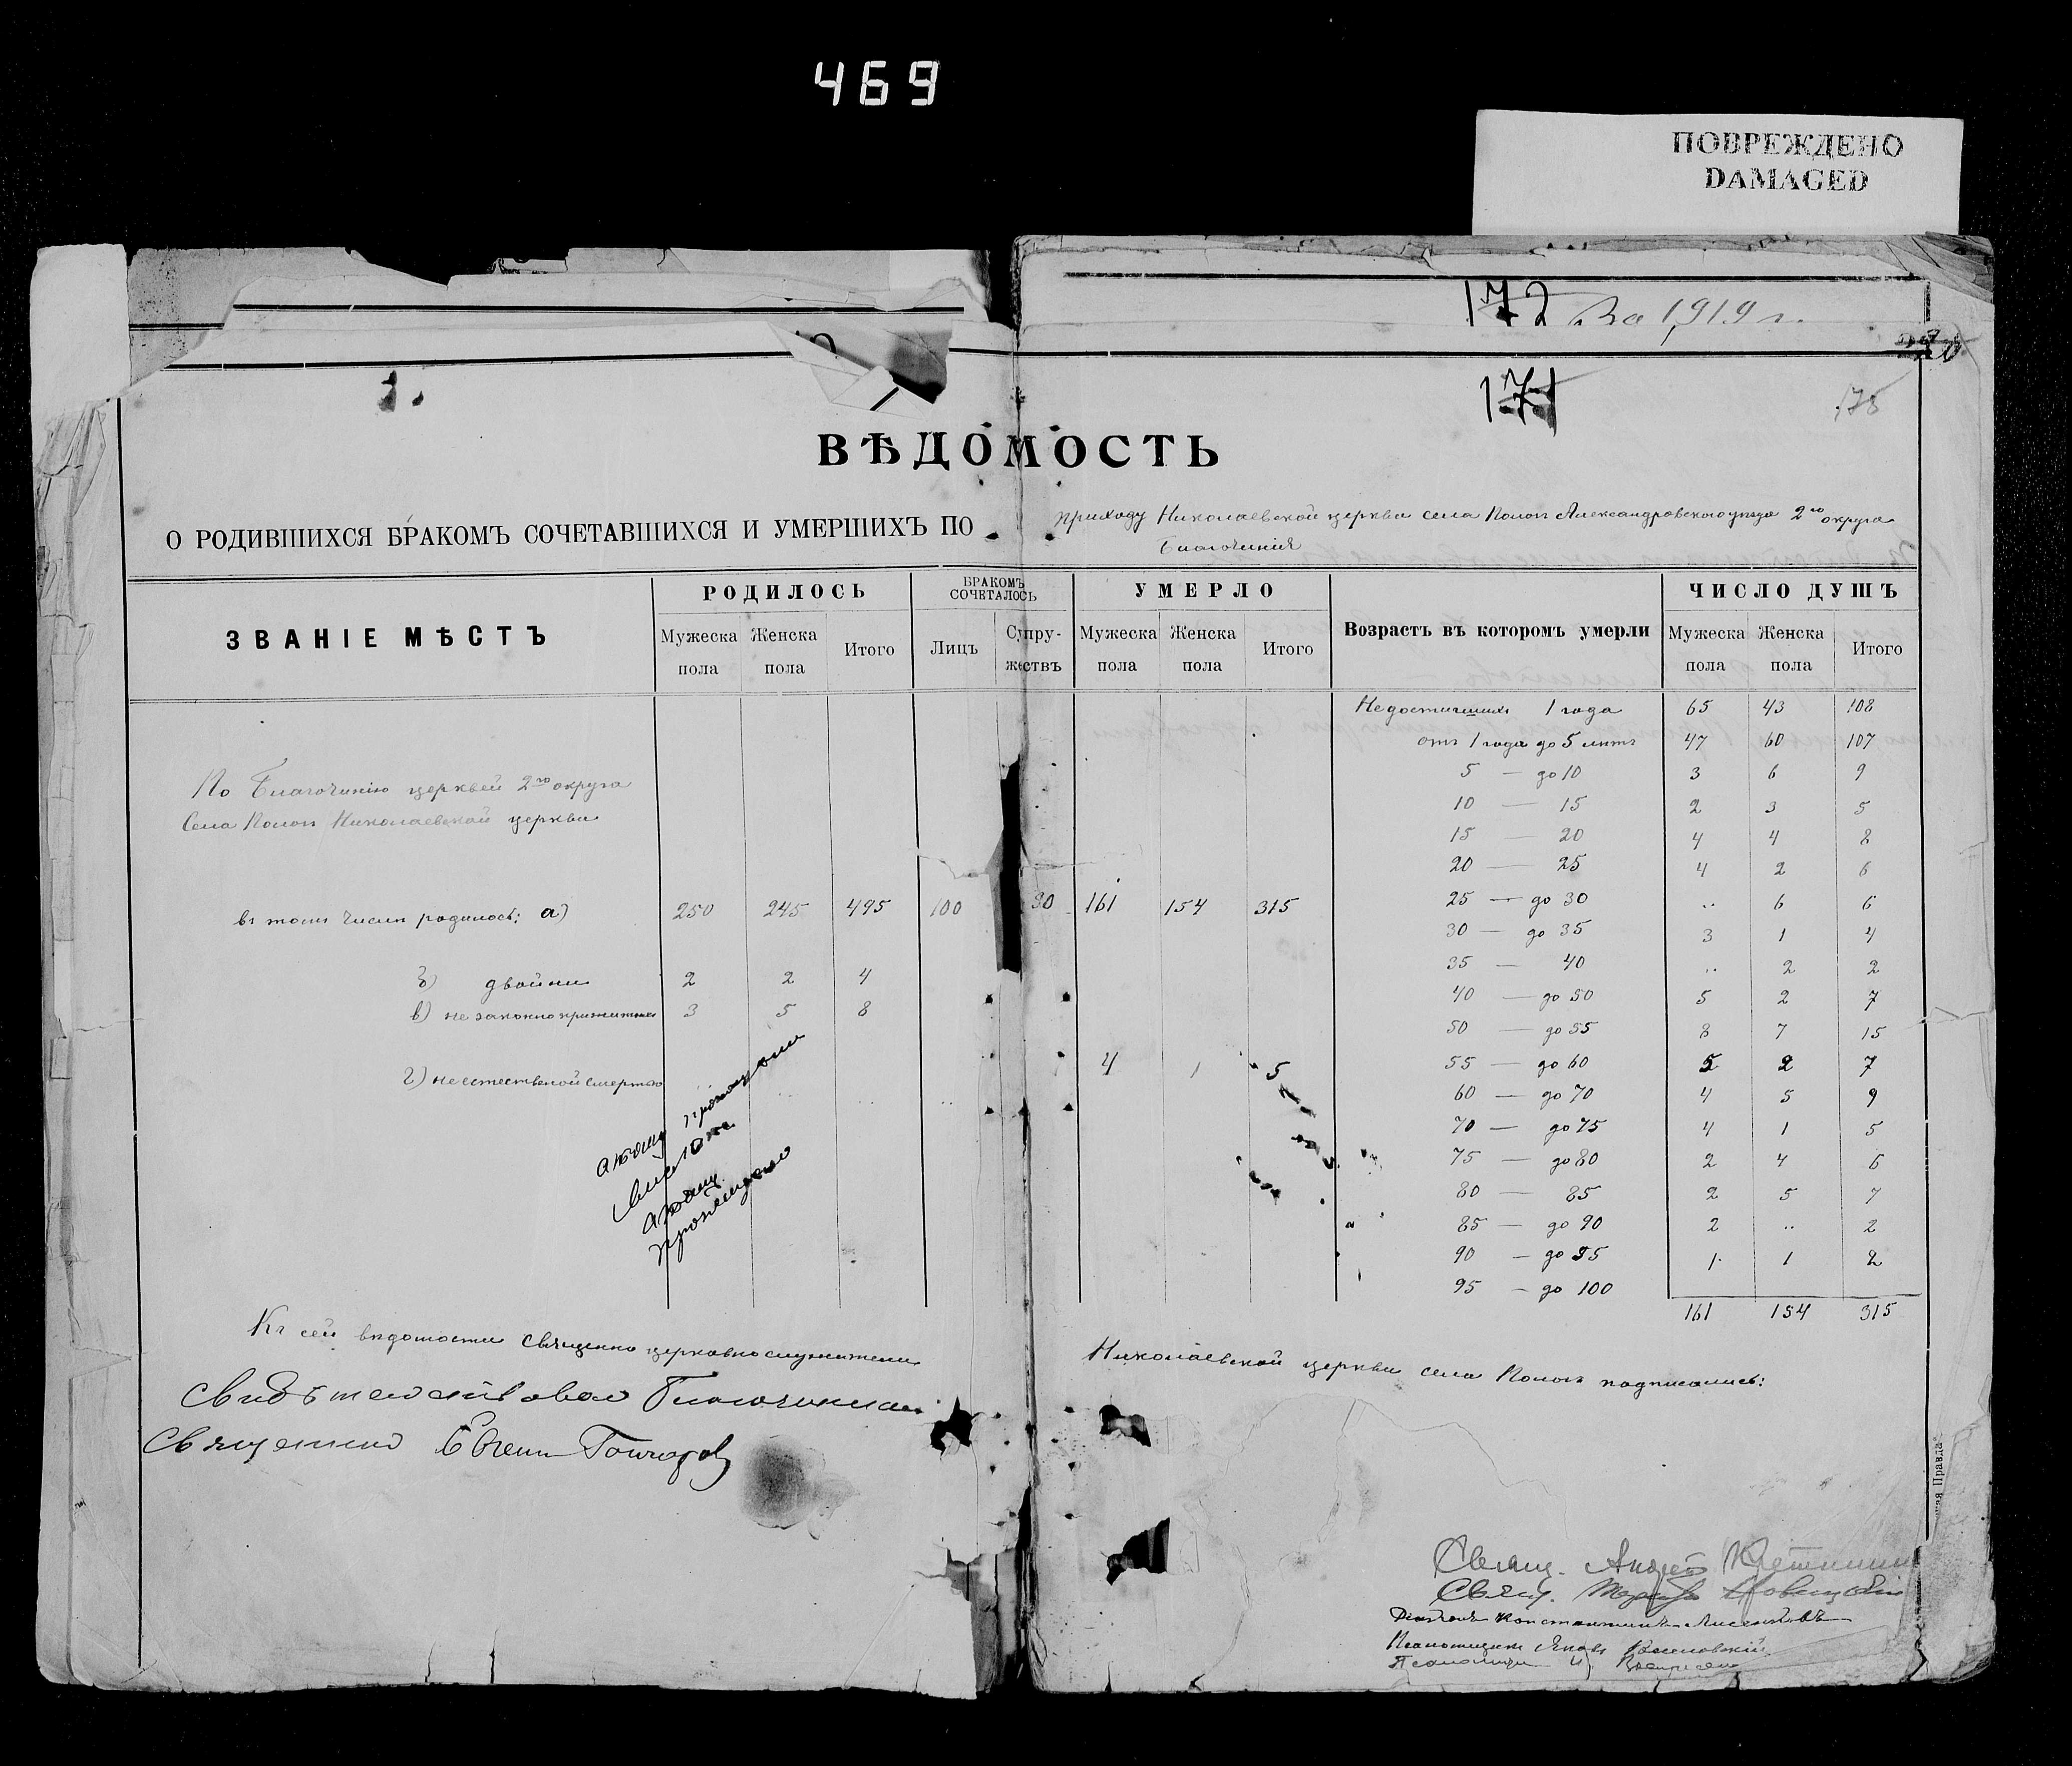 469
ПОВРЕЖДЕНО
DAMAGED
172 За 1919 г.
171
175
ВѢДОМОСТЬ
О РОДИВШИХСЯ БРАКОМЪ СОЧЕТАВШИХСЯ И УМЕРШИХЪ ПО приходу Николаевской церкви села Пологъ Александровского уѣзда 2го округа
Благочинія
ЗВАНІЕ МѢСТЪ РОДИЛОСЬ БРАКОМЪ СОЧЕТАЛОСЬ УМЕРЛО Возрастъ въ которомъ умерли ЧИСЛО ДУШЪ
Мужеска пола Женска пола Итого Лицъ Супружествъ Мужеска пола Женска пола Итого Мужеска пола Женска пола Итого
Недостигшихъ 1 года 65 43 108
отъ 1 года до 5 лѣтъ 47 60 107
По Благочинію церквей 2го округа
Села Пологъ Николаевской церкви
5 — до 10 3 6 9
10 — 15 2 3 5
15 — 20 4 4 8
20 — 25 4 2 6
въ томъ числѣ родилось: а) 250 245 495 100 161 154 315
25 — до 30 .. 6 6
30 — до 35 3 1 4
35 — 40 .. 2 2
б) двойни 2 2 4
40 — до 50 5 2 7
в) не законно прижитыхъ 3 5 8
50 — до 55 8 7 15
г) не естественой смертью .. .. .. .. 4 1 5
55 — до 60 5 2 7
60 — до 70 4 5 9
70 — до 75 4 1 5
75 — до 80 2 4 6
80 — 85 2 5 7
85 — до 90 2 .. 2
90 — до 95 1 1 2
95 — до 100
161 154 315
Къ сей вѣдомости священно церковнослужители Николаевской церкви села Пологъ подписались:
Свидѣтельствовал Благочинный
Священник Евгений Гончаров
Свящ. Андрей
Свящ. Новицкій
Діаконъ Константинъ
Псаломщикъ Яковъ
Псаломщикъ
Правда"